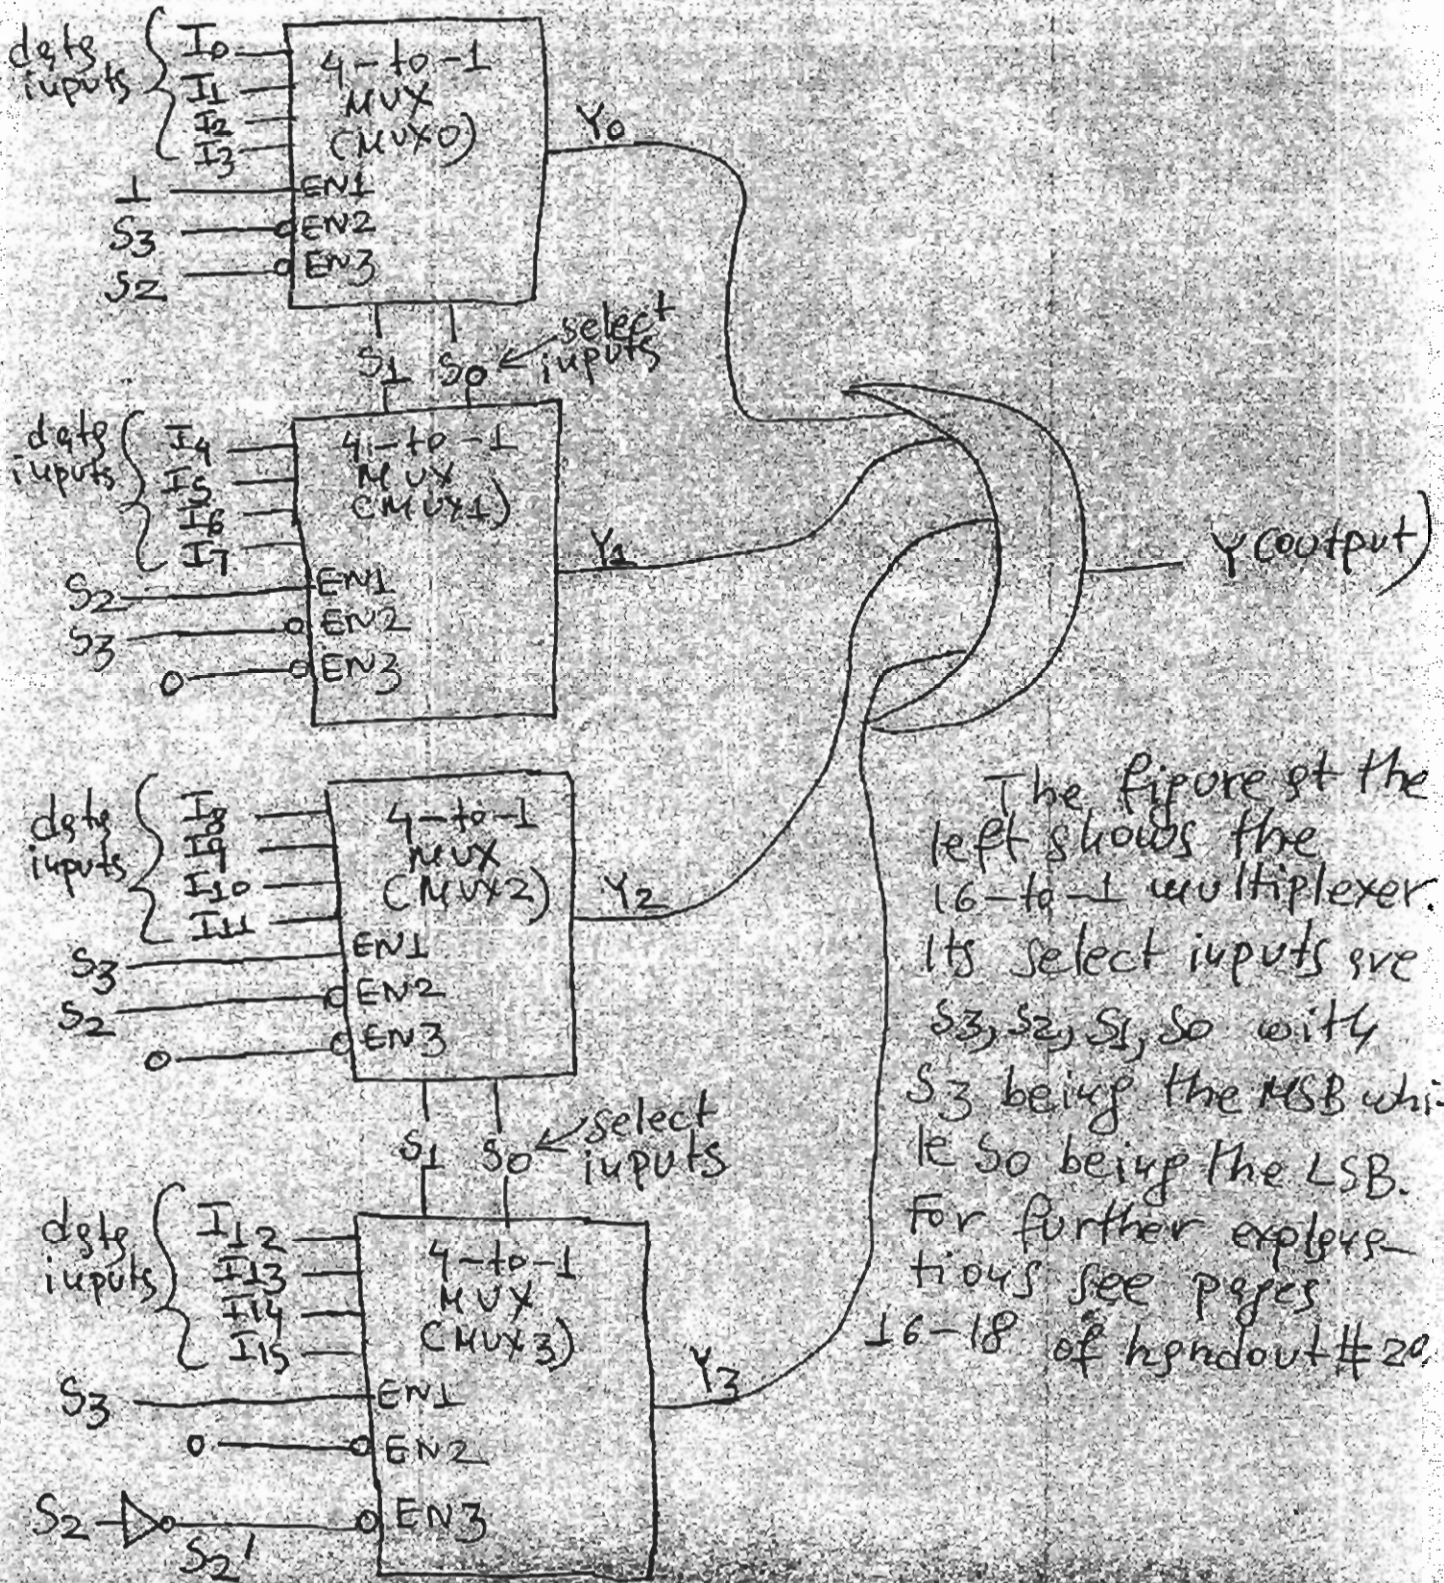 data
inputs
I0
I1
I2
I3
4-to-1
MUX
(MUX0)
1
S3
S2
EN1
EN2
EN3
Y0
S1 S0
select
inputs
data
inputs
I4
I5
I6
I7
4-to-1
MUX
(MUX1)
S2
S3
0
EN1
EN2
EN3
Y1
Y(output)
data
inputs
I8
I9
I10
I11
4-to-1
MUX
(MUX2)
S3
S2
0
EN1
EN2
EN3
Y2
S1 S0
select
inputs
data
inputs
I12
I13
I14
I15
4-to-1
MUX
(MUX3)
S3
0
S2
S2'
EN1
EN2
EN3
Y3
The figure at the
left shows the
16-to-1 multiplexer.
Its select inputs are
S3, S2, S1, S0 with
S3 being the MSB whi-
le S0 being the LSB.
For further explana-
tions see pages
16-18 of handout #20